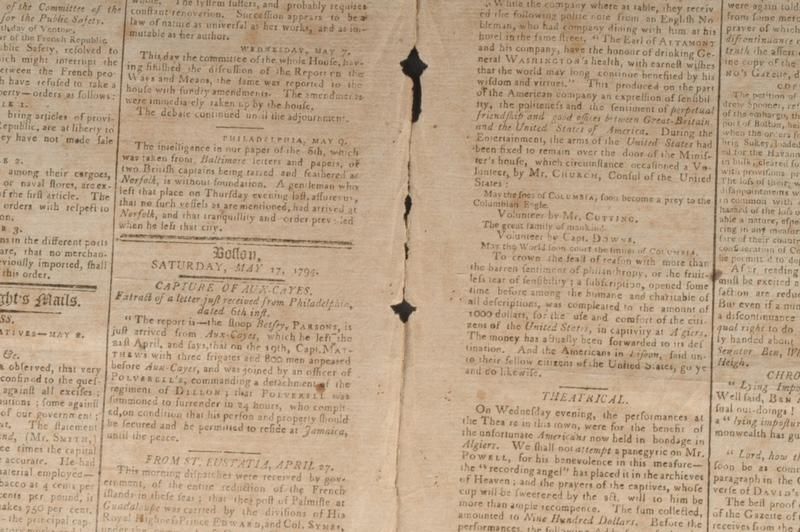 of the Committee of the
for the Public Safety.
of the French Republic.
Public Safety, resolved to
might interrupt the
between the French pro-
have refused to take a
perty—orders as follows:
bring articles of provi-
Republic, are at liberty to
they have not made sale
among their cargoes,
or naval stores, are ex-
of the first article. The
orders with respect to
in the different ports
are, that no merchan-
viously imported, shall
this order.
ht's Mails.
MAY 2.
&c.
observed, that very
confined to the ques-
against all excises;
some against
of our government;
The statement
(Mr. SMITH,)
times the capital
accurate. He had
material employed—
tobacco at 4 cents per
cents per pound, it
makes 750 per cent.
the principal cap-
whole. The system suffers, and probably requires
constant renovation. Succession appears to be a
law of nature as universal as her works, and as im-
mutable as her author.
WEDNESDAY, MAY 7.
This day the committee of the whole House, hav-
ing finished the discussion of the Report on the
Ways and Means, the same was reported to the
house with sundry amendments. The amendments
were immediately taken up by the house.
The debate continued until the adjournment.
PHILADELPHIA, MAY 9.
The intelligence in our paper of the 6th, which
was taken from Baltimore letters and papers, of
two British captains being tarred and feathered at
Norfolk, is without foundation. A gentleman who
left that place on Thursday evening last, assures us,
that no such vessels as are mentioned, had arrived at
Norfolk, and that tranquility and order prevailed
when he left that city.
Boston,
SATURDAY, MAY 17, 1794.
CAPTURE OF AUX-CAYES.
Extract of a letter just received from Philadelphia,
dated 6th inst.
"The report is—the sloop Betsey, PARSONS, is
just arrived from Aux-Cayes, which he left the
21st April, and says, that on the 19th, Capt. MAT-
THEWS with three frigates and 800 men appeared
before Aux-Cayes, and was joined by an officer of
POLVERELL's, commanding a detachment of the
regiment of DILLON; that POLVERELL was
summoned to surrender in 24 hours, who compli-
ed, on condition that his person and property should
be secured and be permitted to reside at Jamaica,
until the peace.
FROM ST. EUSTATIA, APRIL 27.
This morning dispatches were received by gov-
ernment, of the entire reduction of the French
islands in these seas; that the post of Palmiste at
Guadaloupe was carried by the divisions of His
Royal Highness Prince EDWARD, and Col. SYMES,
While the company where at table, they receiv-
ed the following polite note from an English No-
bleman, who had company dining with him at his
hotel in the same street, "The Earl of ALTAMONT
and his company, have the honour of drinking Ge-
neral WASHINGTON's health, with earnest wishes
that the world may long continue benefited by his
wisdom and virtues." This produced on the part
of the American company an expression of sensibil-
ity, the politeness and the sentiment of perpetual
friendship and good offices between Great-Britain
and the United States of America. During the
Entertainment, the arms of the United States had
been fixed to remain over the door of the Minis-
ter's house, which circumstance occasioned a Vo-
lunteer, by Mr. CHURCH, Consul of the United
States:
May the foes of COLUMBIA, soon become a prey to the
Columbian Eagle.
Volunteer by Mr. CUTTING.
The great family of mankind.
Volunteer by Capt. DOWNS.
May the World soon court the smiles of COLUMBIA.
To crown the feast of reason with more than
the barren sentiment of philanthropy, or the fruit-
less tear of sensibility; a subscription, opened some
time before among the humane and charitable of
all descriptions, was compleated to the amount of
1000 dollars, for the use and comfort of the citi-
zens of the United States, in captivity at Algiers.
The money has actually been forwarded to its des-
tination. And the Americans in Lisbon, said un-
to their fellow citizens of the United States, go ye
and do likewise.
THEATRICAL.
On Wednesday evening, the performances at
the Theatre in this town, were for the benefit of
the unfortunate Americans now held in bondage in
Algiers. We shall not attempt a panegyric on Mr.
POWELL, for his benevolence in this measure—
the "recording angel" has placed it in the archieves
of Heaven; and the prayers of the captives, whose
cup will be sweetened by the act, will to him be
more than ample recompence. The sum collected,
amounted to Nine Hundred Dollars. Before the
performances, the following
were again told
from some mer
prayer of which
discontinuance
truth the assert
copy of the
NO's Gazette, d
The petition of
drew Spooner, ref
of the embargo, th
port of Boston, be
when the orders
brig Sukey, loaded
for the Havanna
in bulk, cleared
with provisions
The loss of them,
disappointment
in common with
hazard of the loss
able a nature,
cring in any measur
fare of their countr
confiscation of
be permitted to de
After reading
must be excited
faction are reduc
But even if a mi
a discontinuance
qual right to do
ly handed about
Senator Ben, Wi
Heigh,
CHRO
"Lying Impo
Well said, BEN
sual out-doings!
a "lying impostur
monwealth has gu
"Lord, how th
soon be as comm
paragraph in the
verse of DAVID's
The best proof
of the Gazette of